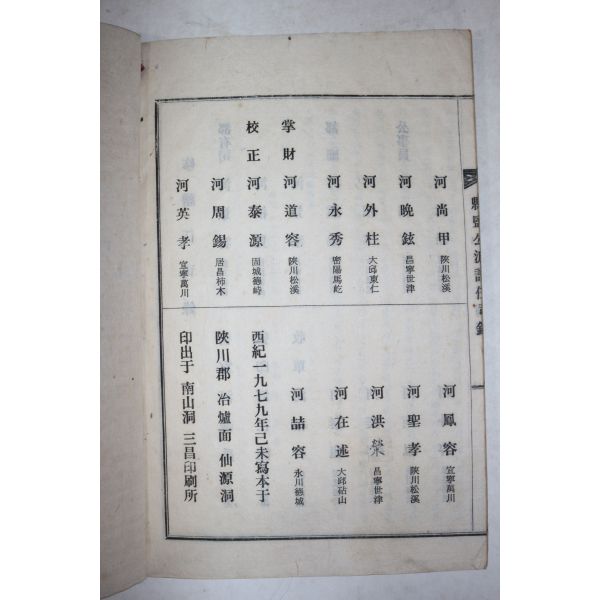 縣監公派譜任員錄
河尚甲 陜川松溪
河晚鉉 昌寧世津
河外柱 大邱東仁
河永秀 密陽馬屹
掌財 河道容 陜川松溪
校正 河泰源 固城德峙
河周錫 居昌柿木
河英孝 宜寧萬川
河鳳容 宜寧萬川
河聖孝 陜川松溪
河洪榮 昌寧世津
河在述 大邱砧山
河喆容 永川德城
西紀一九七九年己未寫本于
陜川郡 冶爐面 仙源洞
印出于 南山洞 三昌印刷所